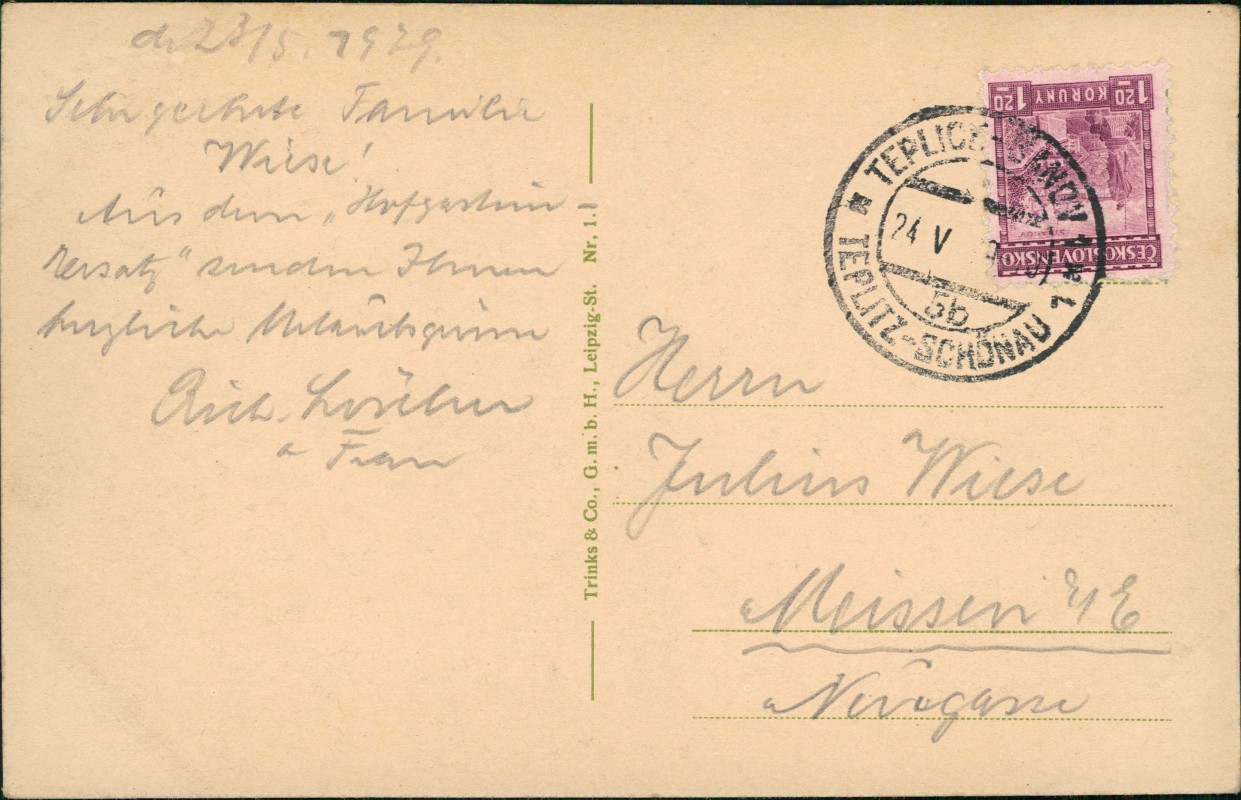 d. 23/5. 1929.
Sehr geehrte Familie
Wiese!
Aus dem „Hofgastein-
Ersatz“ senden Ihnen
herzliche Urlaubsgrüsse
Rich.
u Frau
Trinks & Co., G. m. b. H., Leipzig-St. Nr. 1.
1·20 KORUNY 1·20
ČESKOSLOVENSKO
TEPLICE-ŠANOV 1
TEPLITZ-SCHÖNAU 1
24 V
5b
Herrn
Julius Wiese
Meissen a/E
Neugasse